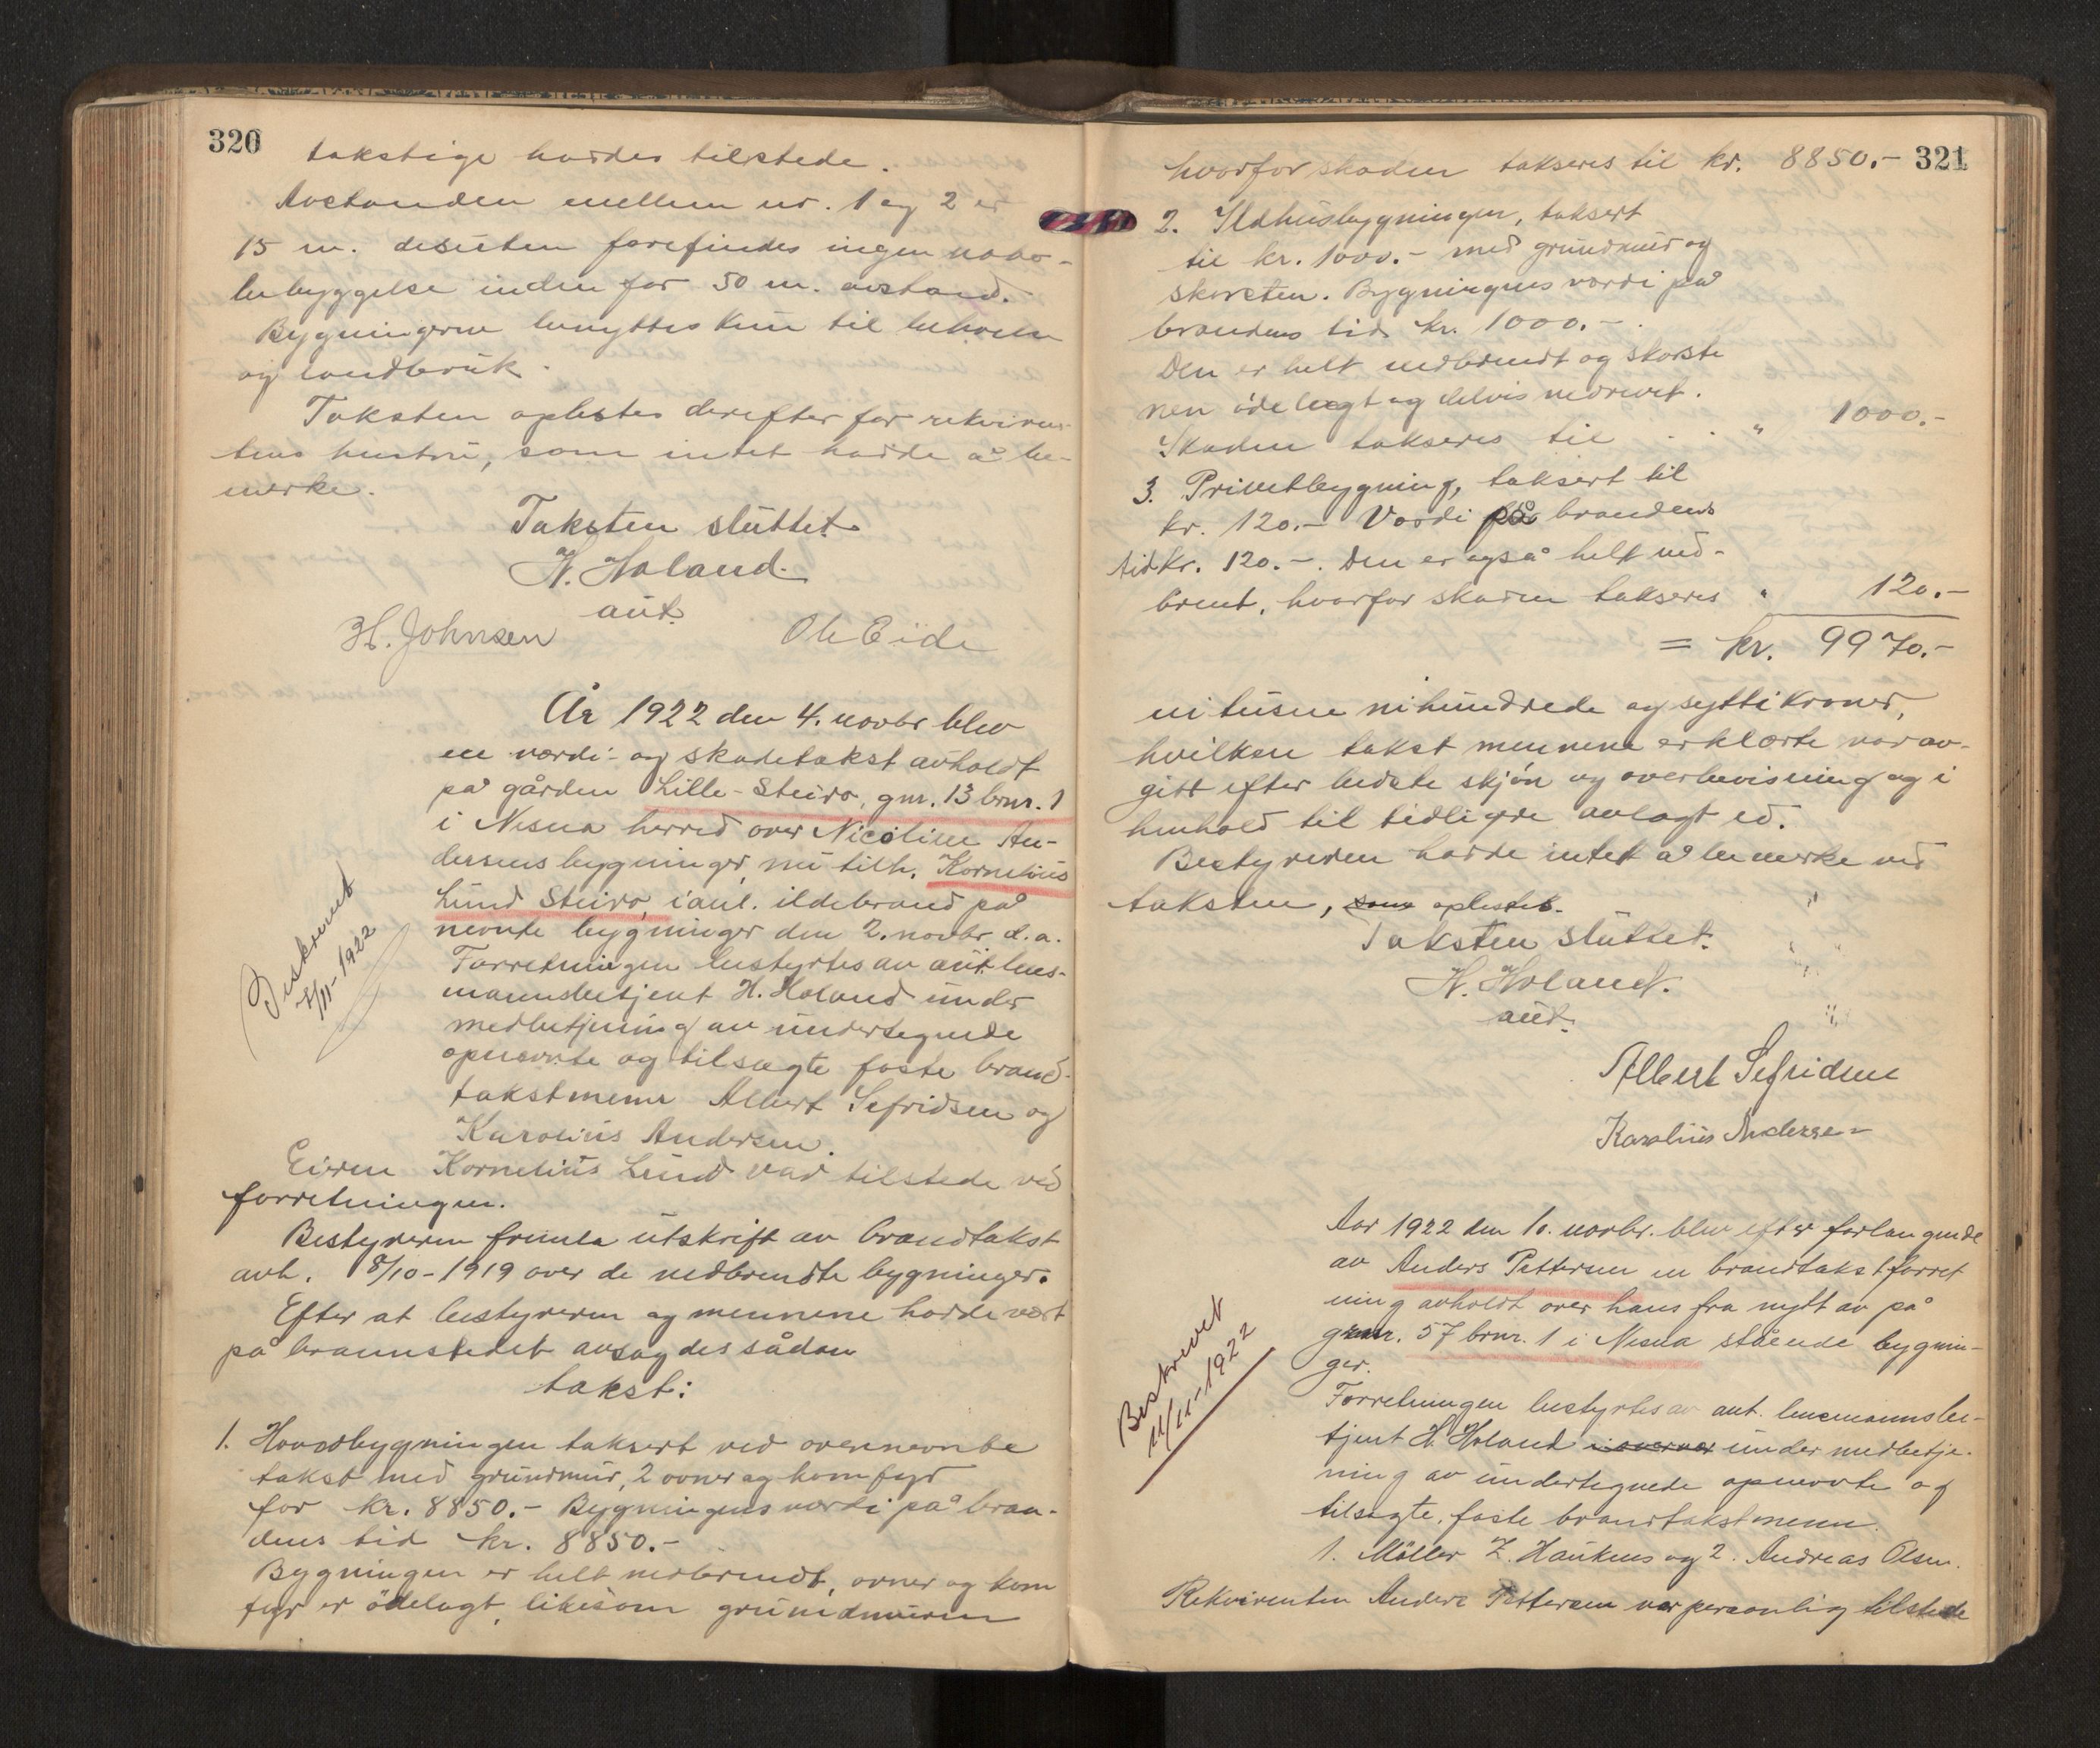 320
takstige hordes tilstede.
Avstanden mellem nr. 1 og 2 er
15 m. desuten forefindes ingen nabo-
bebyggelse inden for 50 m. avstand.
Bygningerne benyttes kun til beboelse
og landbruk.
Taksten oplestes derefter for rekviren-
tens hustru, som intet hadde å be-
merke.
Taksten sluttet.
H. Holand.
aut.
H. Johnsen Ole Eide
År 1922 den 4. novbr blev
en værdi- og skadetakst avholdt
på gården Lille-Steiro, gnr. 13 brnr. 1
i Nesna herred over Nicoline An-
dersens bygninger, nu tilh. Kornelius
Lund Steiro, i anl. ildebrand på
nevnte bygninger den 2. novbr d.a.
Forretningen bestyrtes av aut. lens-
mannsbetjent H. Holand under
medbetjening av undertegnede
opnevnte og tilsagte faste brand-
takstmenn Albert Sefridsen og
Karolius Andersen.
Beskrevet
8/11-1922
Eieren Kornelius Lund var tilstede ved
forretningen.
Bestyreren fremla utskrift av brandtakst
avh. 8/10-1919 over de nedbrendte bygninger.
Efter at bestyreren og mennene hadde vært
på brannstedet avsagdes sådan
takst:
1. Hovedbygningen taksert ved ovennevnte
takst med grundmur, 2 ovner og komfyr
for kr. 8850.- Bygningens værdi på bran-
dens tid kr. 8850.-
Bygningen er helt nedbrendt, ovner og kom
fyr er ödelagt, likesom grundmuren
321
hvorfor skaden takseres til kr. 8850.-
2. Ildhusbygningen, taksert
til kr. 1000.- med grundmur og
skorsten. Bygningens værdi på
brandens tid kr. 1000.-
Den er helt nedbrendt og skorste
nen ödelagt og delvis nedrevet.
Skaden takseres til . . " 1000.-
3. Privetbygning, taksert til
kr. 120.- Værdi på brandens
tid kr. 120.-. Den er også helt ned-
brent, hvorfor skaden takseres " 120.-
= kr. 9970.-
ni tusen nihundrede og sytti kroner,
hvilken takst mennene erklærte var av-
gitt efter bedste skjön og overbevisning og i
henhold til tidligere avlagt ed.
Bestyreren hadde intet å bemerke ved
taksten, som oplestes.
Taksten sluttet.
H. Holand.
aut.
Albert Sefridsen
Karolius Andersen
Aar 1922 den 10. novbr. blev efter forlangende
av Anders Pettersen en brandtakstforret
ning avholdt over hans fra nytt av på
gnr. 57 brnr. 1 i Nesna stående bygnin-
ger.
Beskrevet
11/11-1922
Forretningen bestyrtes av aut. lensmannsbe-
tjent H. Holand i overvær under medbetje-
ning av undertegnede opnevnte og
tilsagte, faste brandtakstmenn.
1. Möller Z. Hauknes og 2. Andreas Olsen.
Rekvirenten Anders Pettersen var personlig tilstede